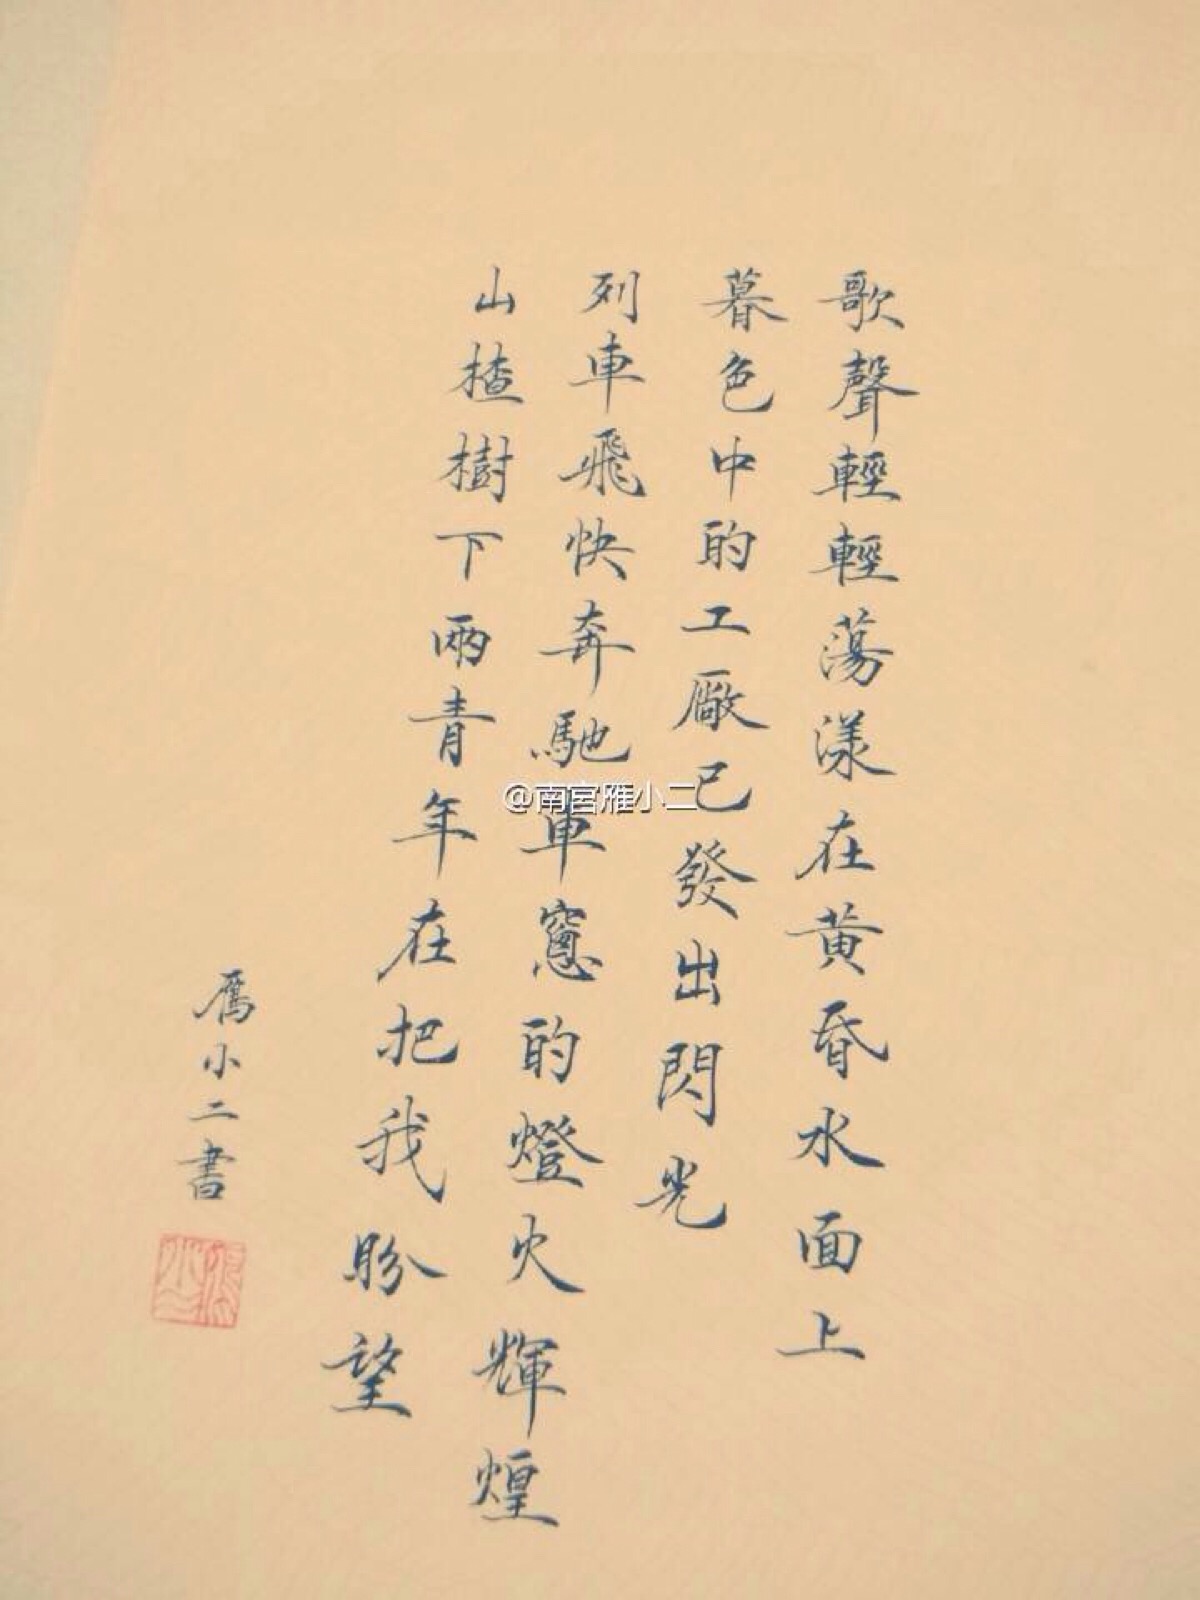 歌聲輕輕蕩漾在黃昏水面上
暮色中的工廠已發出閃光
列車飛快奔馳車窻的燈火輝煌
山楂樹下兩青年在把我盼望
雁小二書
@南宫雁小二